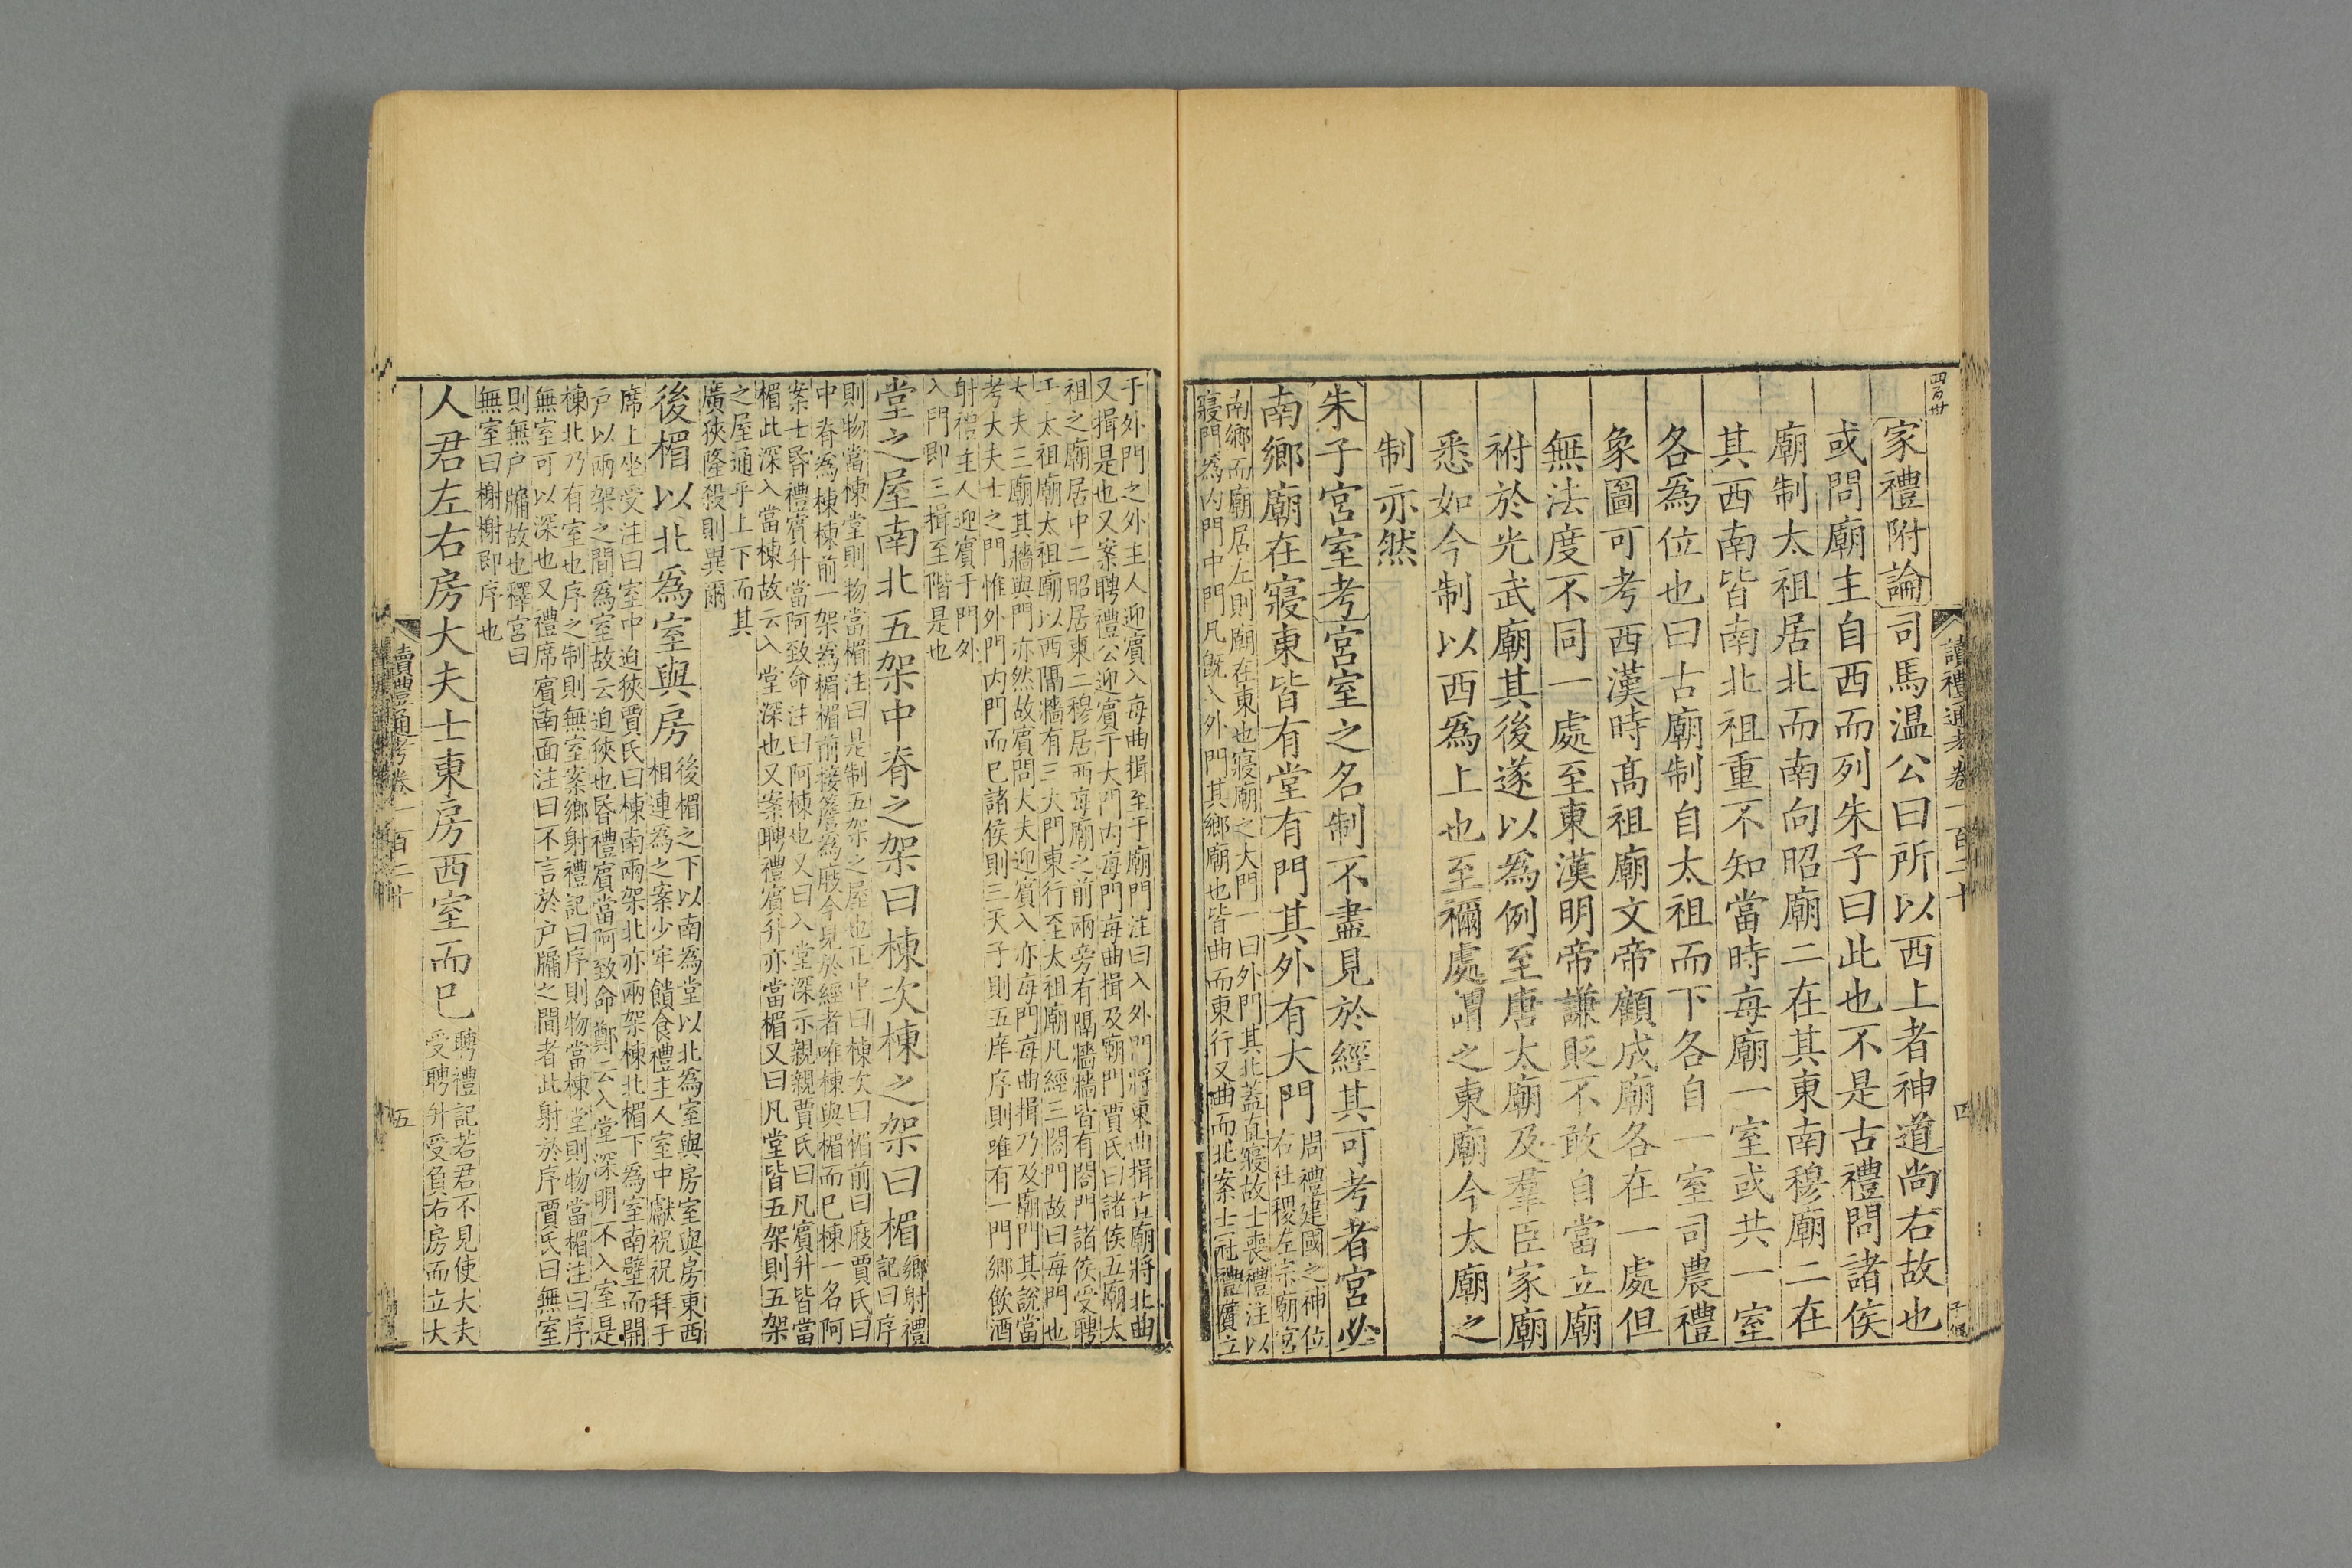 四百卅
讀禮通考卷一百二十
四
家禮附論司馬温公曰所以西上者神道尚右故也
或問廟主自西而列朱子曰此也不是古禮問諸侯
廟制太祖居北而南向昭廟二在其東南穆廟二在
其西南皆南北祖重不知當時每廟一室或共一室
各為位也曰古廟制自太祖而下各自一室司農禮
象圖可考西漢時高祖廟文帝顧成廟各在一處但
無法度不同一處至東漢明帝謙貶不敢自當立廟
祔於光武廟其後遂以為例至唐太廟及羣臣家廟
悉如今制以西為上也至禰處謂之東廟今太廟之
制亦然
朱子宮室考宮室之名制不盡見於經其可考者宮必
南鄉廟在寢東皆有堂有門其外有大門
周禮建國之神位
右社稷左宗廟宮
南鄉而廟居左則廟在東也寢廟之大門一曰外門其北蓋直寢故士喪禮注以
寢門為內門中門凡旣入外門其鄉廟也皆曲而東行又曲而北案士冠禮賓立
于外門之外主人迎賓入每曲揖至于廟門注曰入外門將東曲揖直廟將北曲
又揖是也又案聘禮公迎賓于大門內每門每曲揖及廟門賈氏曰諸侯五廟太
祖之廟居中二昭居東二穆居西每廟之前兩旁有隔牆牆皆有閤門諸侯受聘
于太祖廟太祖廟以西隔牆有三大門東行至太祖廟凡經三閤門故曰每門也
大夫三廟其牆與門亦然故賓問大夫大夫迎賓入亦每門每曲揖乃及廟門其說當
考大夫士之門惟外門內門而已諸侯則三天子則五庠序則唯有一門鄉飲酒
射禮主人迎賓于門外
入門即三揖至階是也
堂之屋南北五架中脊之架曰棟次棟之架曰楣
鄉射禮
記曰序
則物當棟堂則物當楣注曰是制五架之屋也正中曰棟次曰楣前曰庪賈氏曰
中脊為棟棟前一架為楣楣前接簷為庪今見於經者唯棟與楣而已棟一名阿
案士昏禮賓升當阿致命注曰阿棟也又曰入堂深示親親賈氏曰凡賓升皆當
楣此深入當棟故云入堂深也又案聘禮賓升亦當楣又曰凡堂皆五架則五架
之屋通乎上下而其
廣狹隆殺則異爾
後楣以北為室與房
後楣之下以南為堂以北為室與房室與房東西
相連為之案少牢饋食禮主人室中獻祝祝拜于
席上坐受注曰室中迫狹賈氏曰棟南兩架北亦兩架棟北楣下為室南壁而開
戶以兩架之間為室故云迫狹也昏禮賓當阿致命鄭云入堂深明不入室是
棟北乃有室也序之制則無室案鄉射禮記曰序則物當棟堂則物當楣注曰序
無室可以深也又禮席賓南面注曰不言於戶牖之間者此射於序賈氏曰無室
則無戶牖故也釋宮曰
無室曰榭榭即序也
人君左右房大夫士東房西室而已
聘禮記若君不見使大夫
受聘升受負右房而立大
讀禮通考卷一百二十
五